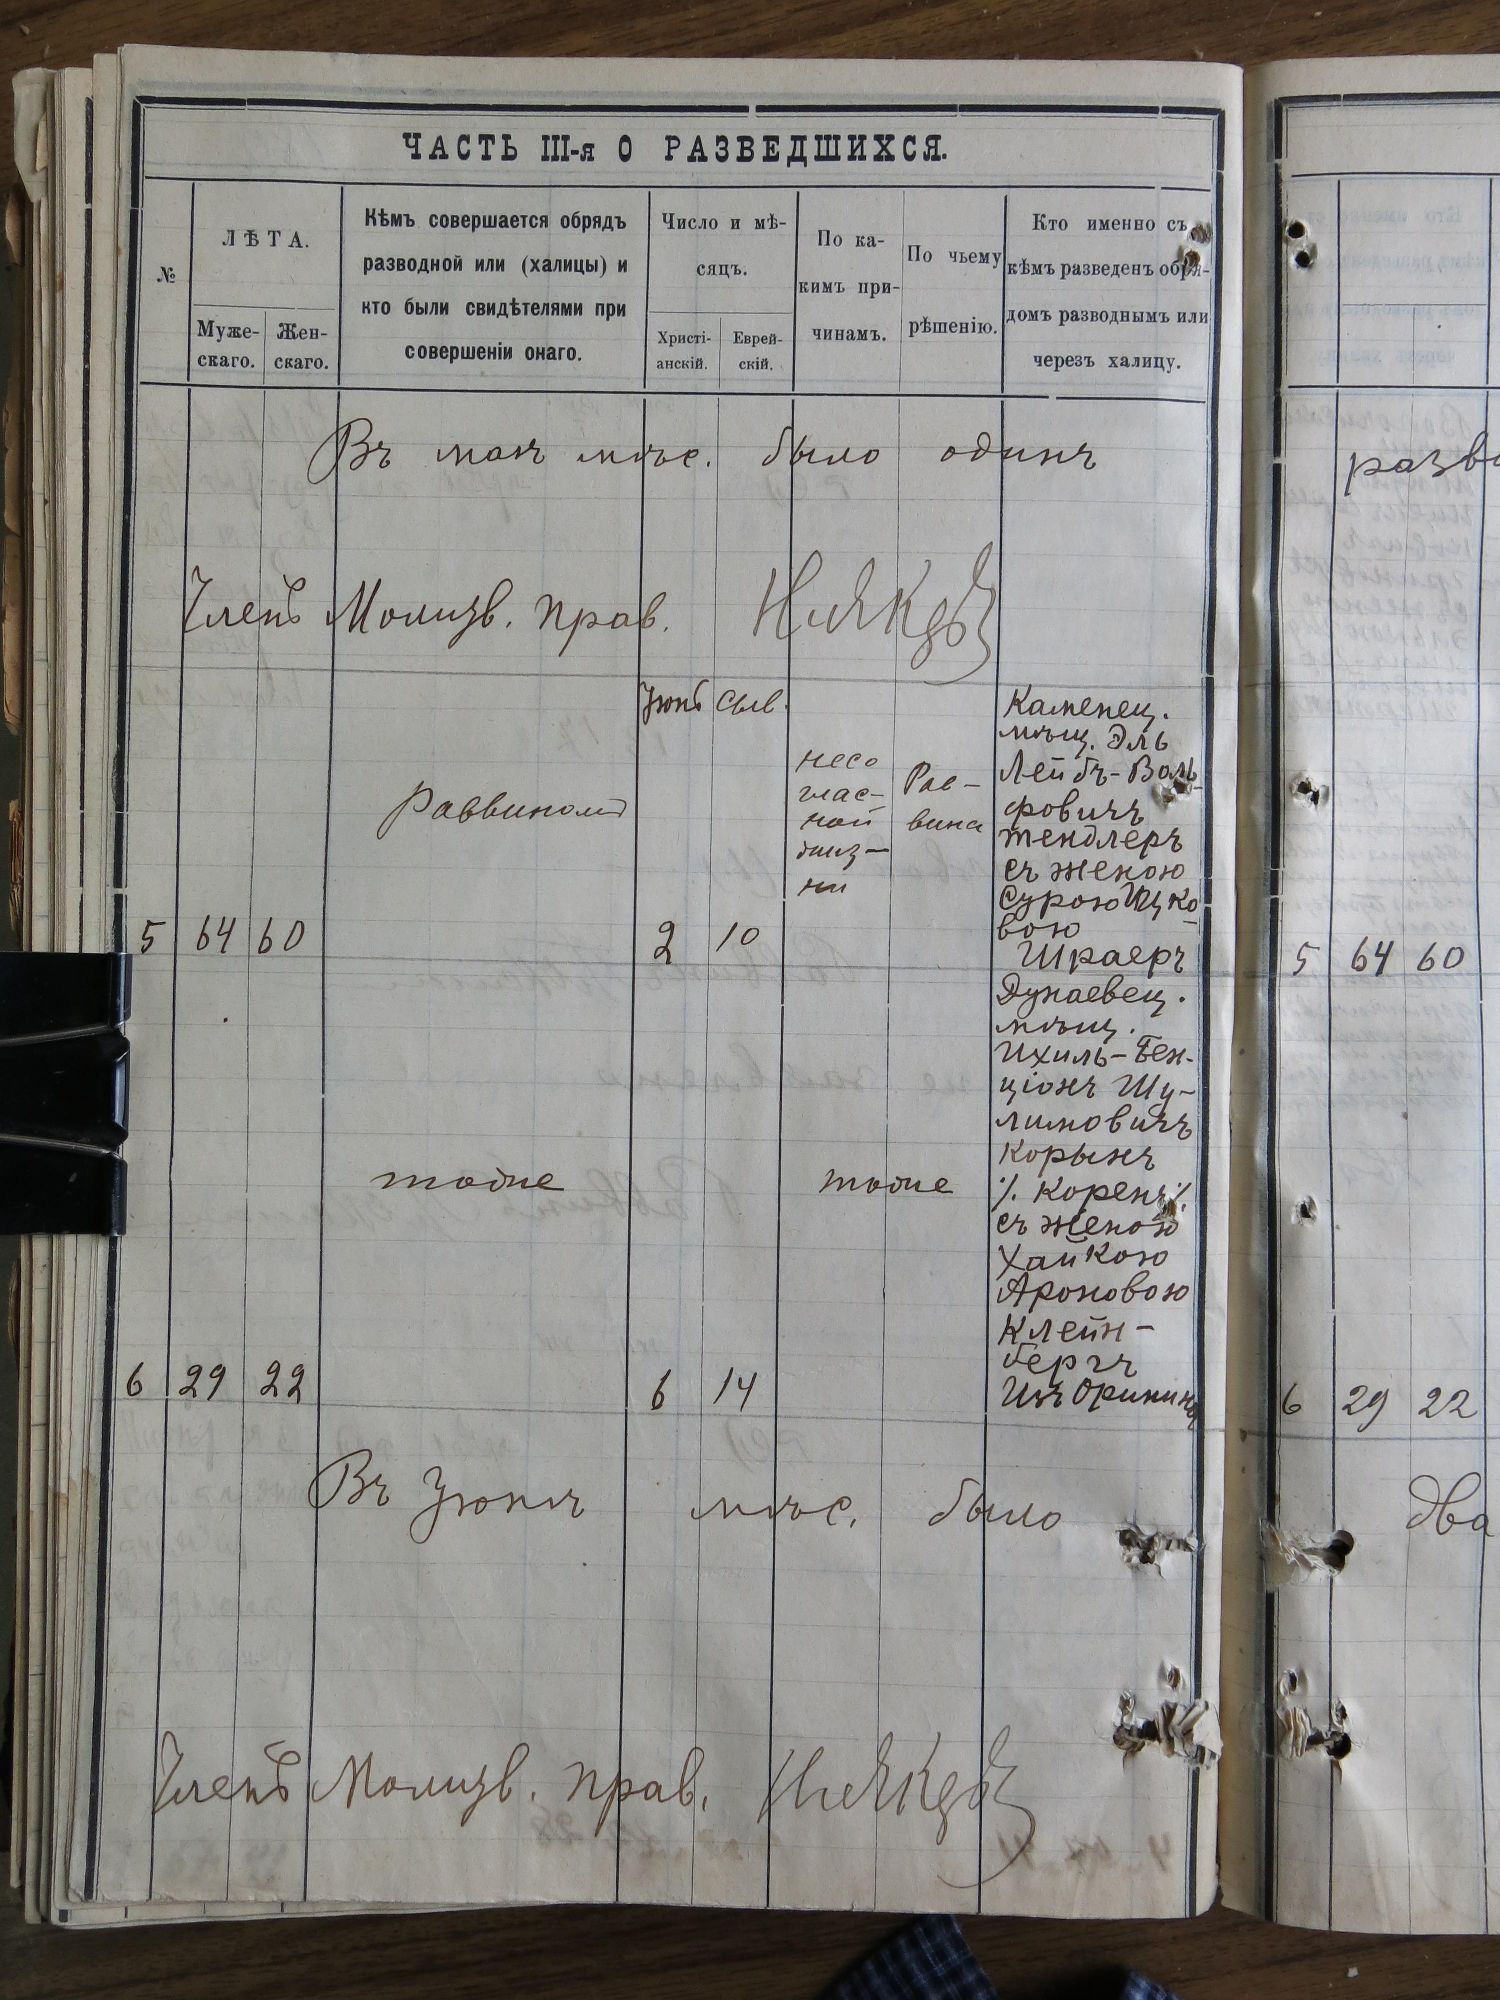 ЧАСТЬ III-я О РАЗВЕДШИХСЯ.
№
ЛѢТА.
Муже-
скаго.
Жен-
скаго.
Кѣмъ совершается обрядъ
разводной или (халицы) и
кто были свидѣтелями при
совершеніи онаго.
Число и мѣ-
сяцъ.
Христі-
анскій.
Еврей-
скій.
По ка-
кимъ при-
чинамъ.
По чьему
рѣшенію.
Кто именно съ
кѣмъ разведенъ обря-
домъ разводнымъ или
черезъ халицу.
Въ маѣ мѣс. было одинъ
разв
Членъ Молитв. прав.
Іюнь Сив.
5 64 60
Раввиномъ
2 10
несо
глас-
ной
жиз-
ни
Рав-
вина
Каменец.
мѣщ. Эль
Лейбъ-Воль
фовичъ
Тендлеръ
съ женою
Сурою Ицко-
вою
Шраеръ
5 64 60
6 29 22
тоже
6 14
тоже
Дунаевец.
мѣщ.
Ихиль-Бен-
ціонъ Шу-
лимовичъ
Корынъ
/. Коренъ /.
съ женою
Хайкою
Ароновою
Клейн-
бергъ
изъ Оринина
6 29 22
Въ Іюнѣ мѣс. было
два
Членъ Молитв. прав.